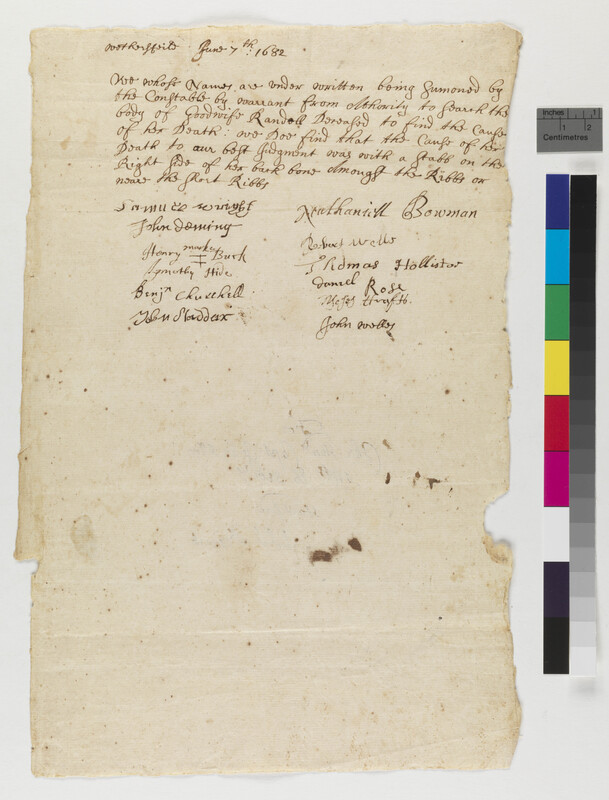 Wethersfeild June 7th: 1682
We whose Names are vnder written being Sumoned by
the Constable by warrant from Athority to search the
body of Goodwife Randell Deceased to find the Cause
of her Death: we Doe find that the Cause of her
Death to our best Judgment was with a stabb on the
Right side of her back bone Amongst the Ribbs or
neare the short Ribbs
Samuel wright Nathaniell Bowman
John Deming Robert Wells
Henry marke Buck Thomas Hollister
Hide Daniel Rose
Benja Churchill
John Welles
Inches 1
1 2
Centimetres